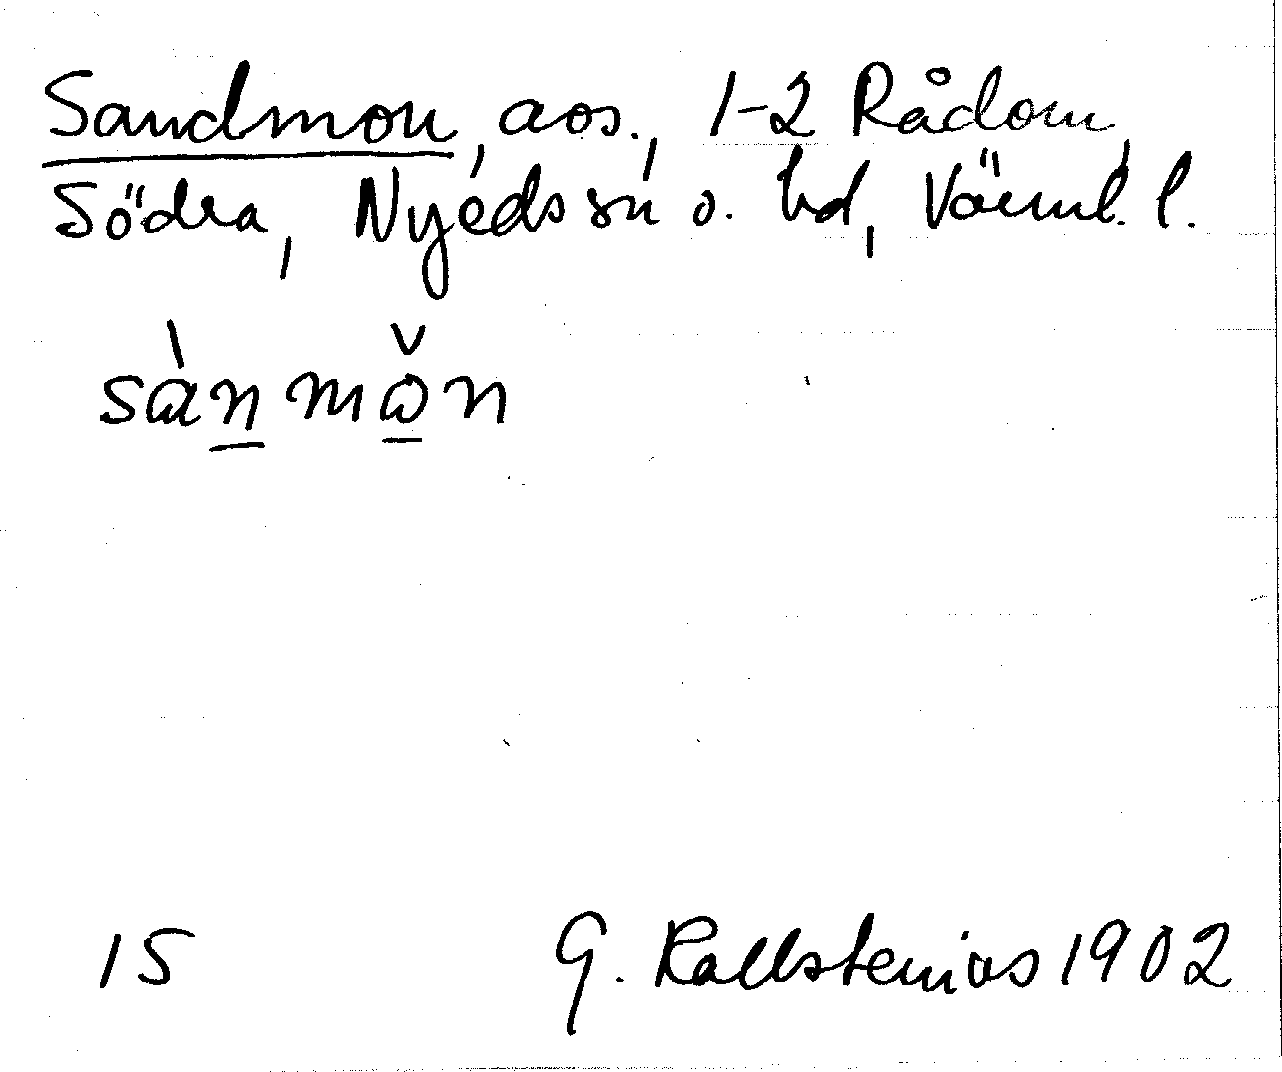 Sandmon, aos., 1-2 Rådom,
Södra, Nyeds sn o. hd, Värml. l.
sàn̲mǒ̲n
15 G. Kallstenius 1902